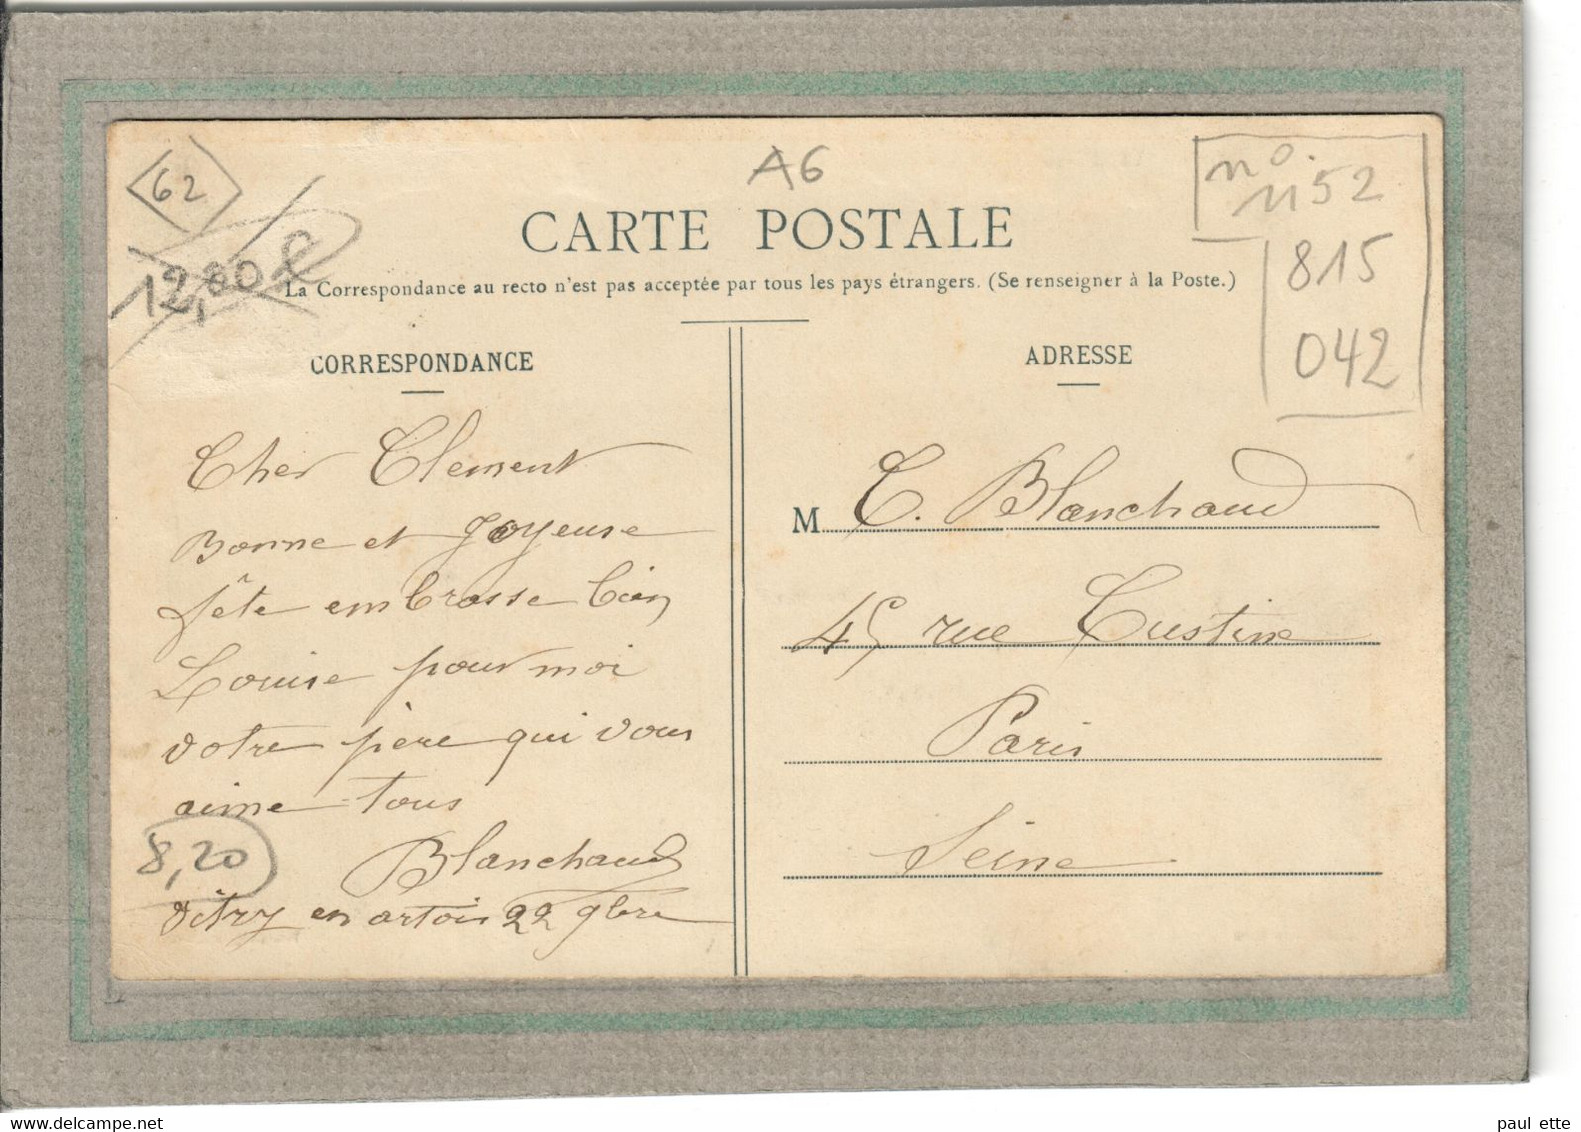 62
A6
n° 1152
12,80
CARTE POSTALE
815
La Correspondance au recto n'est pas acceptée par tous les pays étrangers. (Se renseigner à la Poste.)
042
CORRESPONDANCE
Cher Clement
Bonne et Joyeuse
fête embrasse bien
Louise pour moi
votre père qui vous
aime tous
8,20
Blanchaud
vitry en artois 22 9bre
ADRESSE
M C. Blanchaud
45 rue Custine
Paris
Seine
delcampe.net
paul ette